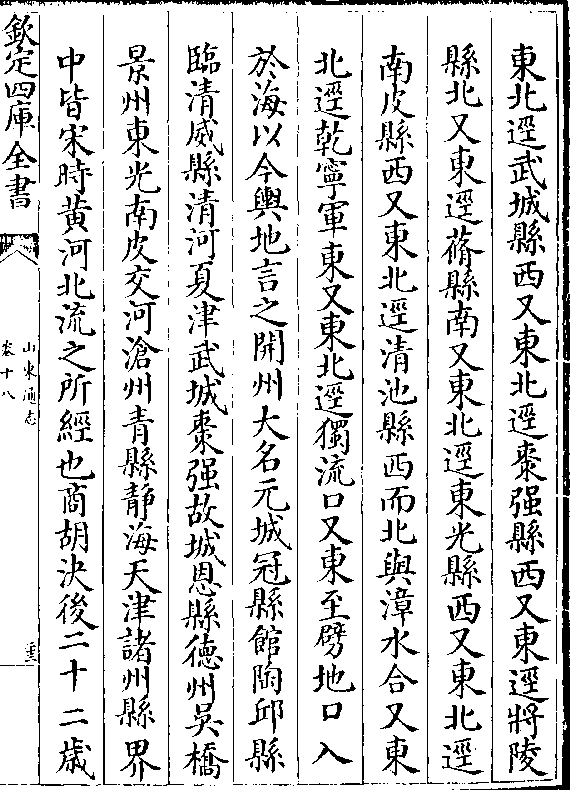 東北逕武城縣西又東北逕棗强縣西又東逕將陵
縣北又東逕蓨縣南又東北逕東光縣西又東北逕
南皮縣西又東北逕清池縣西而北與漳水合又東
北逕乾寧軍東又東北逕獨流口又東至劈地口入
於海以今輿地言之開州大名元城冠縣館陶邱縣
臨清威縣清河夏津武城棗强故城恩縣德州吳橋
景州東光南皮交河滄州青縣靜海天津諸州縣界
中皆宋時黄河北流之所經也商胡決後二十二歲
欽定四庫全書
山東通志
卷十八